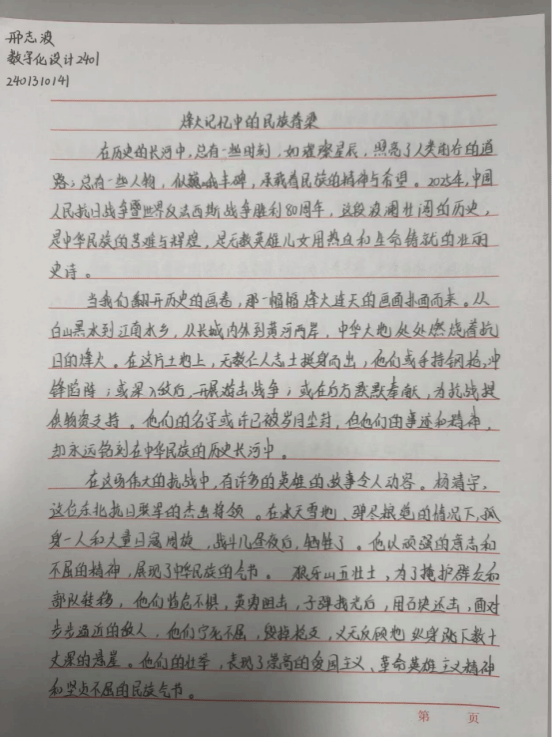 邢志波
数字化设计2401
2401310141
烽火记忆中的民族脊梁
在历史的长河中,总有一些时刻,如璀璨星辰,照亮了人类前行的道
路;总有一些人物,似巍峨丰碑,承载着民族的精神与希望。2025年,中国
人民抗日战争暨世界反法西斯战争胜利80周年,这段波澜壮阔的历史,
是中华民族的苦难与辉煌,是无数英雄儿女用热血和生命铸就的壮丽
史诗。
当我们翻开历史的画卷,那一幅幅烽火连天的画面扑面而来。从
白山黑水到江南水乡,从长城内外到黄河两岸,中华大地处处燃烧着抗
日的烽火。在这片土地上,无数仁人志士挺身而出,他们或手持钢枪,冲
锋陷阵;或深入敌后,开展游击战争;或在后方默默奉献,为抗战提
供物资支持。他们的名字或许已被岁月尘封,但他们的事迹和精神,
却永远铭刻在中华民族的历史长河中。
在这场伟大的抗战中,有许多的英雄的故事令人动容。杨靖宇,
这位东北抗日联军的杰出将领。在冰天雪地、弹尽粮绝的情况下,孤
身一人和大量日寇周旋,战斗几昼夜后,牺牲了。他以顽强的意志和
不屈的精神,展现了中华民族的气节。狼牙山五壮士,为了掩护群众和
部队转移,他们临危不惧,英勇阻击,子弹打光后,用石块还击,面对
步步逼近的敌人,他们宁死不屈,毁掉枪支,义无反顾地纵身跳下数十
丈深的悬崖。他们的壮举,表现了崇高的爱国主义、革命英雄主义精神
和坚贞不屈的民族气节。
第 页